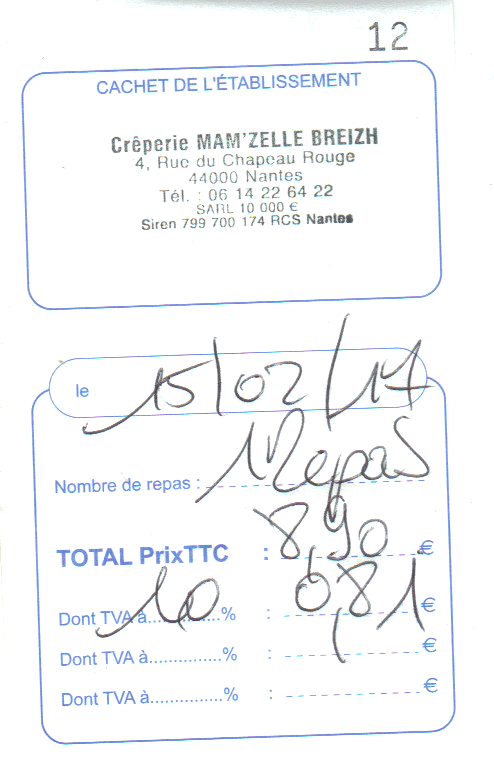 12
CACHET DE L'ÉTABLISSEMENT
Crêperie MAM'ZELLE BREIZH
4, Rue du Chapeau Rouge
44000 Nantes
Tél. : 06 14 22 64 22
SARL 10 000 €
Siren 799 700 174 RCS Nantes
le 15/02/17
Nombre de repas : 1 Repas
TOTAL PrixTTC : 8,90 €
Dont TVA à 10 % : 0,81 €
Dont TVA à...............% : €
Dont TVA à...............% : €